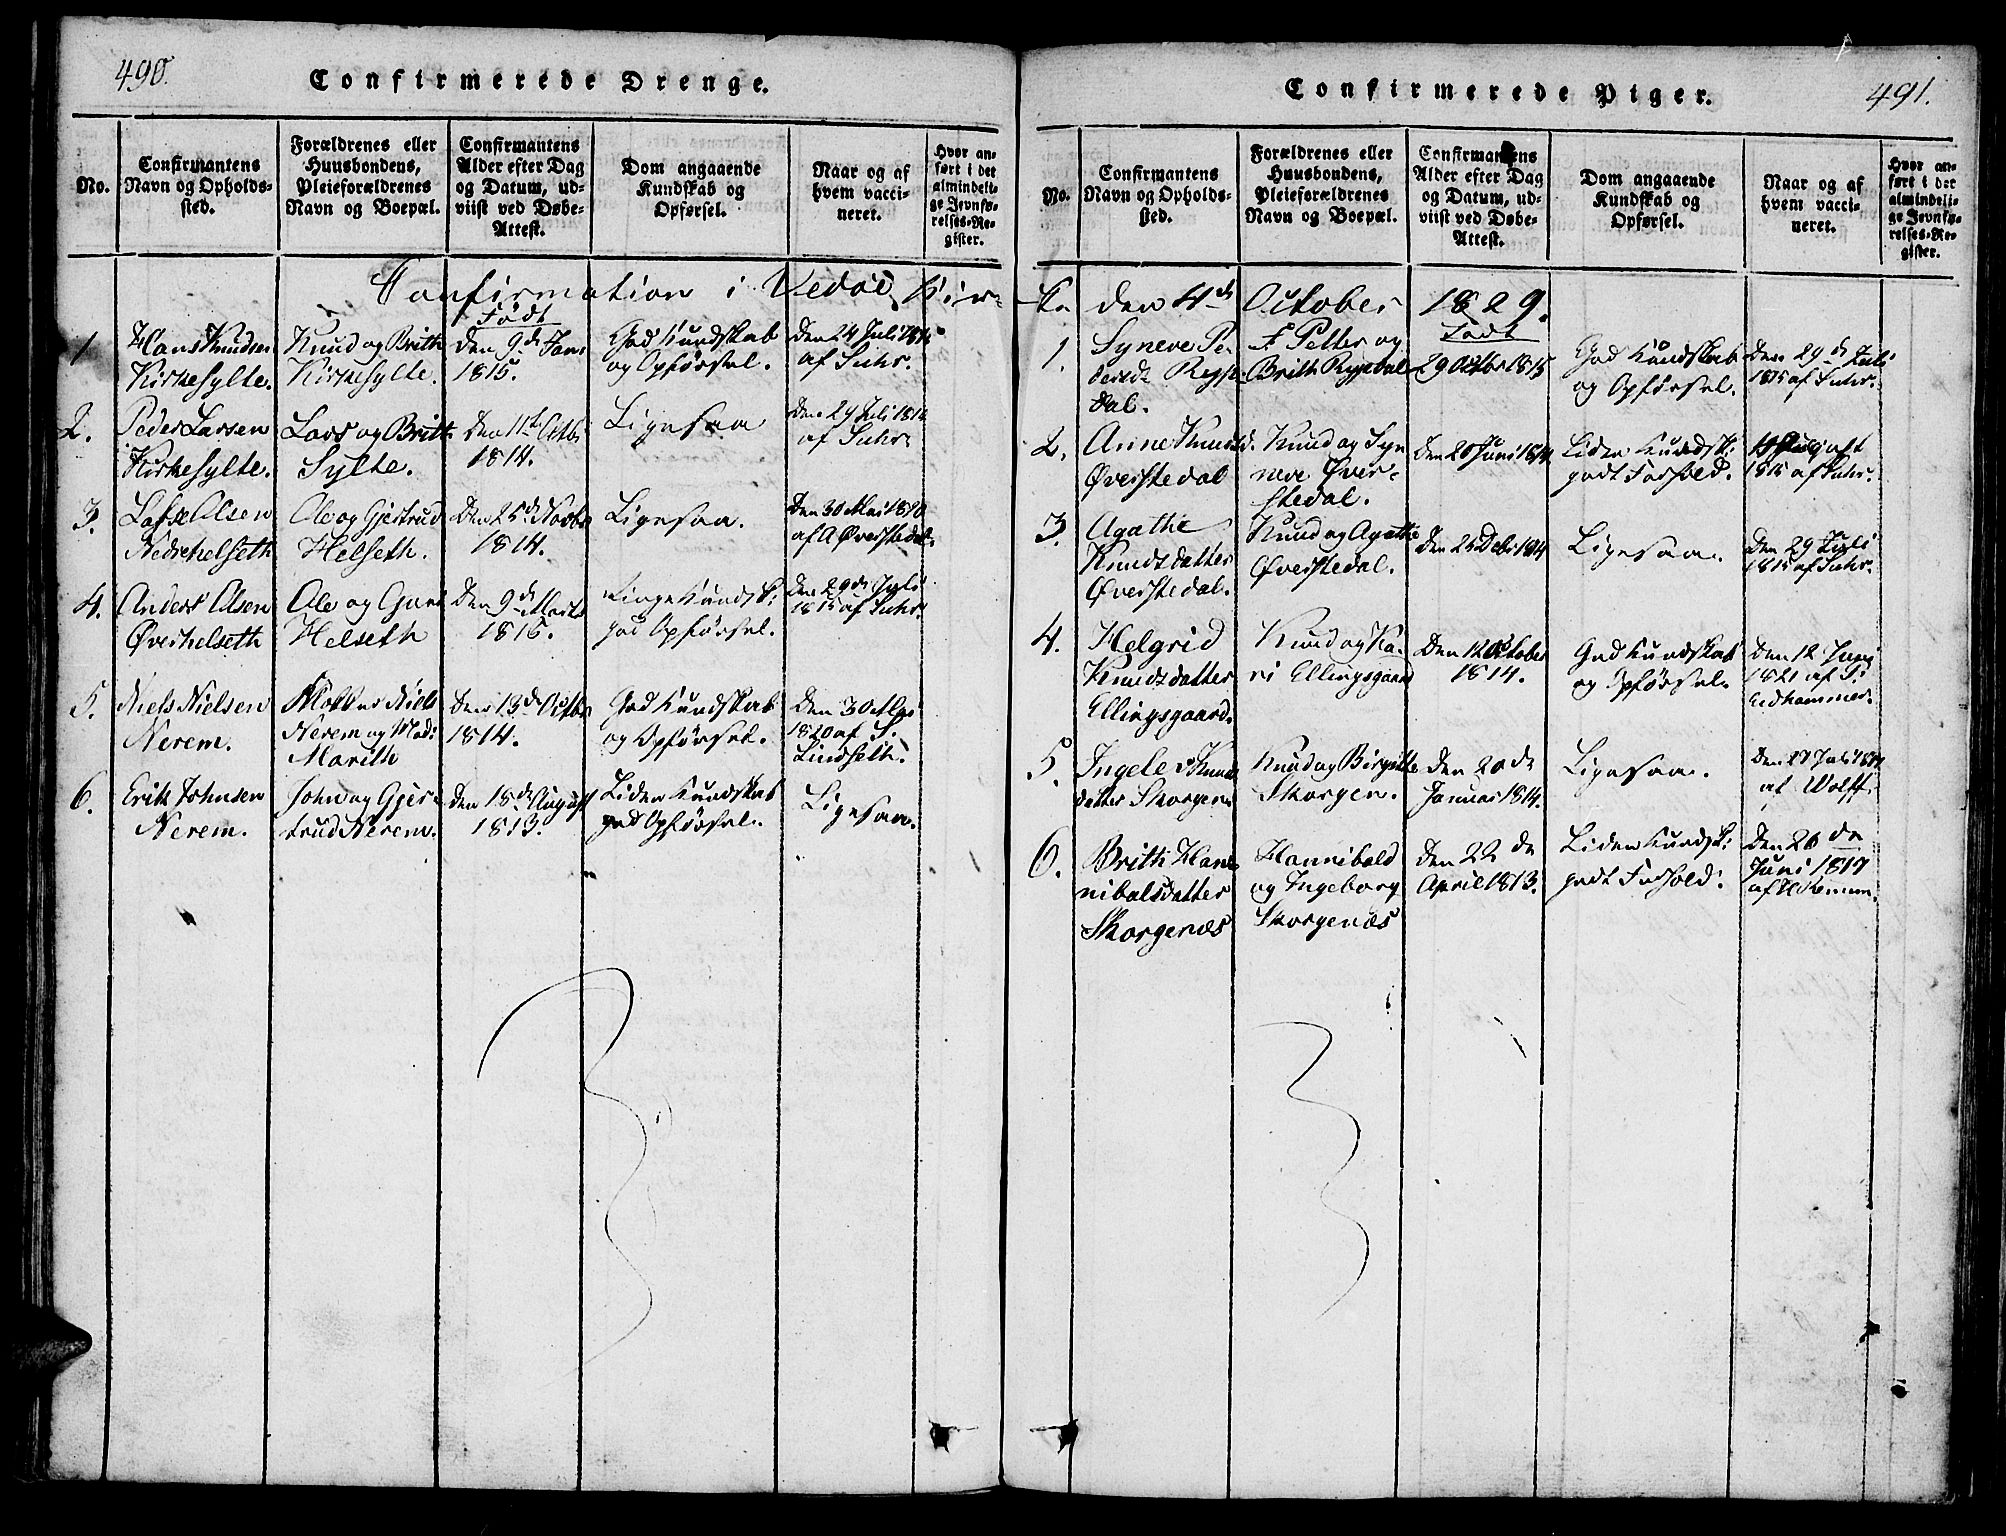 490.
Confirmerede Drenge.
No.
Confirmantens
Navn og Opholds-
sted.
Forældrenes eller
Huusbondens,
Pleieforældrenes
Navn og Boepæl.
Confirmantens
Alder efter Dag
og Datum, ud-
viist ved Døbe-
Attest.
Dom angaaende
Kundskab og
Opførsel.
Naar og af
hvem vacci-
neret.
Hvor an-
ført i det
almindeli-
ge Jevnfø-
relses-Re-
gister.
Confirmation i Vedøe Kir-
Født
1
Hans Knudsen
Kirkesylte.
Knud og Brith
Kirkesylte.
Den 9de Jan:
1815.
God Kundskab
og Opførsel.
Den 24 Juli
af Suhr.
2.
Peder Larsen
Kirkesylte.
Lars og Brith
Sylte.
Den 11te Octb:
1814.
Ligesaa
Den 29 Juli
af Suhr
3.
Olsen
Nedrehelseth
Ole og Gjertrud
Helseth.
Den 25de Novbr
1814.
Ligesaa.
Den 30 Mai
af A Øverstedal.
4.
Anders Olsen
Øverhelseth
Ole og Guri
Helseth
Den 9de Marts
1815.
Ringe Kundsk:
god Opførsel.
Den 29de Juli
1815 af Suhr.
5.
Niels Nielsen
Nerem.
Niels
Nerem og Mad:
Marith
Den 13de Octbr
1814.
God Kundskab
og Opførsel.
Den 30 Mai
1820 af S.
Lindseth.
6.
Erik Johnsen
Nerem.
John og Gjer-
trud Nerem.
Den 18de August
1813.
Liden Kundskab
god Opførsel.
Ligesaa.
491.
Confirmerede Piger.
No.
Confirmantens
Navn og Opholds-
sted.
Forældrenes eller
Huusbondens,
Pleieforældrenes
Navn og Boepæl.
Confirmantens
Alder efter Dag
og Datum, ud-
viist ved Døbe-
Attest.
Dom angaaende
Kundskab og
Opførsel.
Naar og af
hvem vacci-
neret.
Hvor an-
ført i det
almindeli-
ge Jevnfø-
relses-Re-
gister.
ke den 4de October 1829.
Født
1.
Syneve Pe-
dersd: Rypp-
dal.
F Petter og
Brith Rypdal
29 Octbr
God Kundskab
og Opførsel.
Den 29de Juli
1815 af Suhr.
2.
Anne Knudsd.
Øverstedal
Knud og Syn
neve Øver-
stedal.
Den 20 Juni 1814
Liden Kundsk:
godt Forhold.
1815 af Suhr.
3.
Agathe
Knudsdatter
Øverstedal.
Knud og Agathe
Øverstedal.
Den 25 Debr 1814
Ligesaa.
Den 29 Juli
1815 af Suhr.
4.
Helgrid
Knudsdatter
Ellingsgaard.
Knud og Ka-
ri Ellingsgaard
Den 12 October
1814.
God Kundskab
og Opførsel.
Den 12 Juni
1821 af S:
Eidhammer.
5.
Knuds
datter Skorgen
Knud og Birgitte
Skorgen.
Den 20de
Januar 1814.
Ligesaa.
Den 27 Juli
af Wolff.
6.
Brith Han-
nibalsdatter
Skorgenæs
Hannibald
og Ingeborg
Skorgenæs
Den 22de
April 1813.
Liden Kundsk:
godt Forhold.
Den 26de
Juni 1817